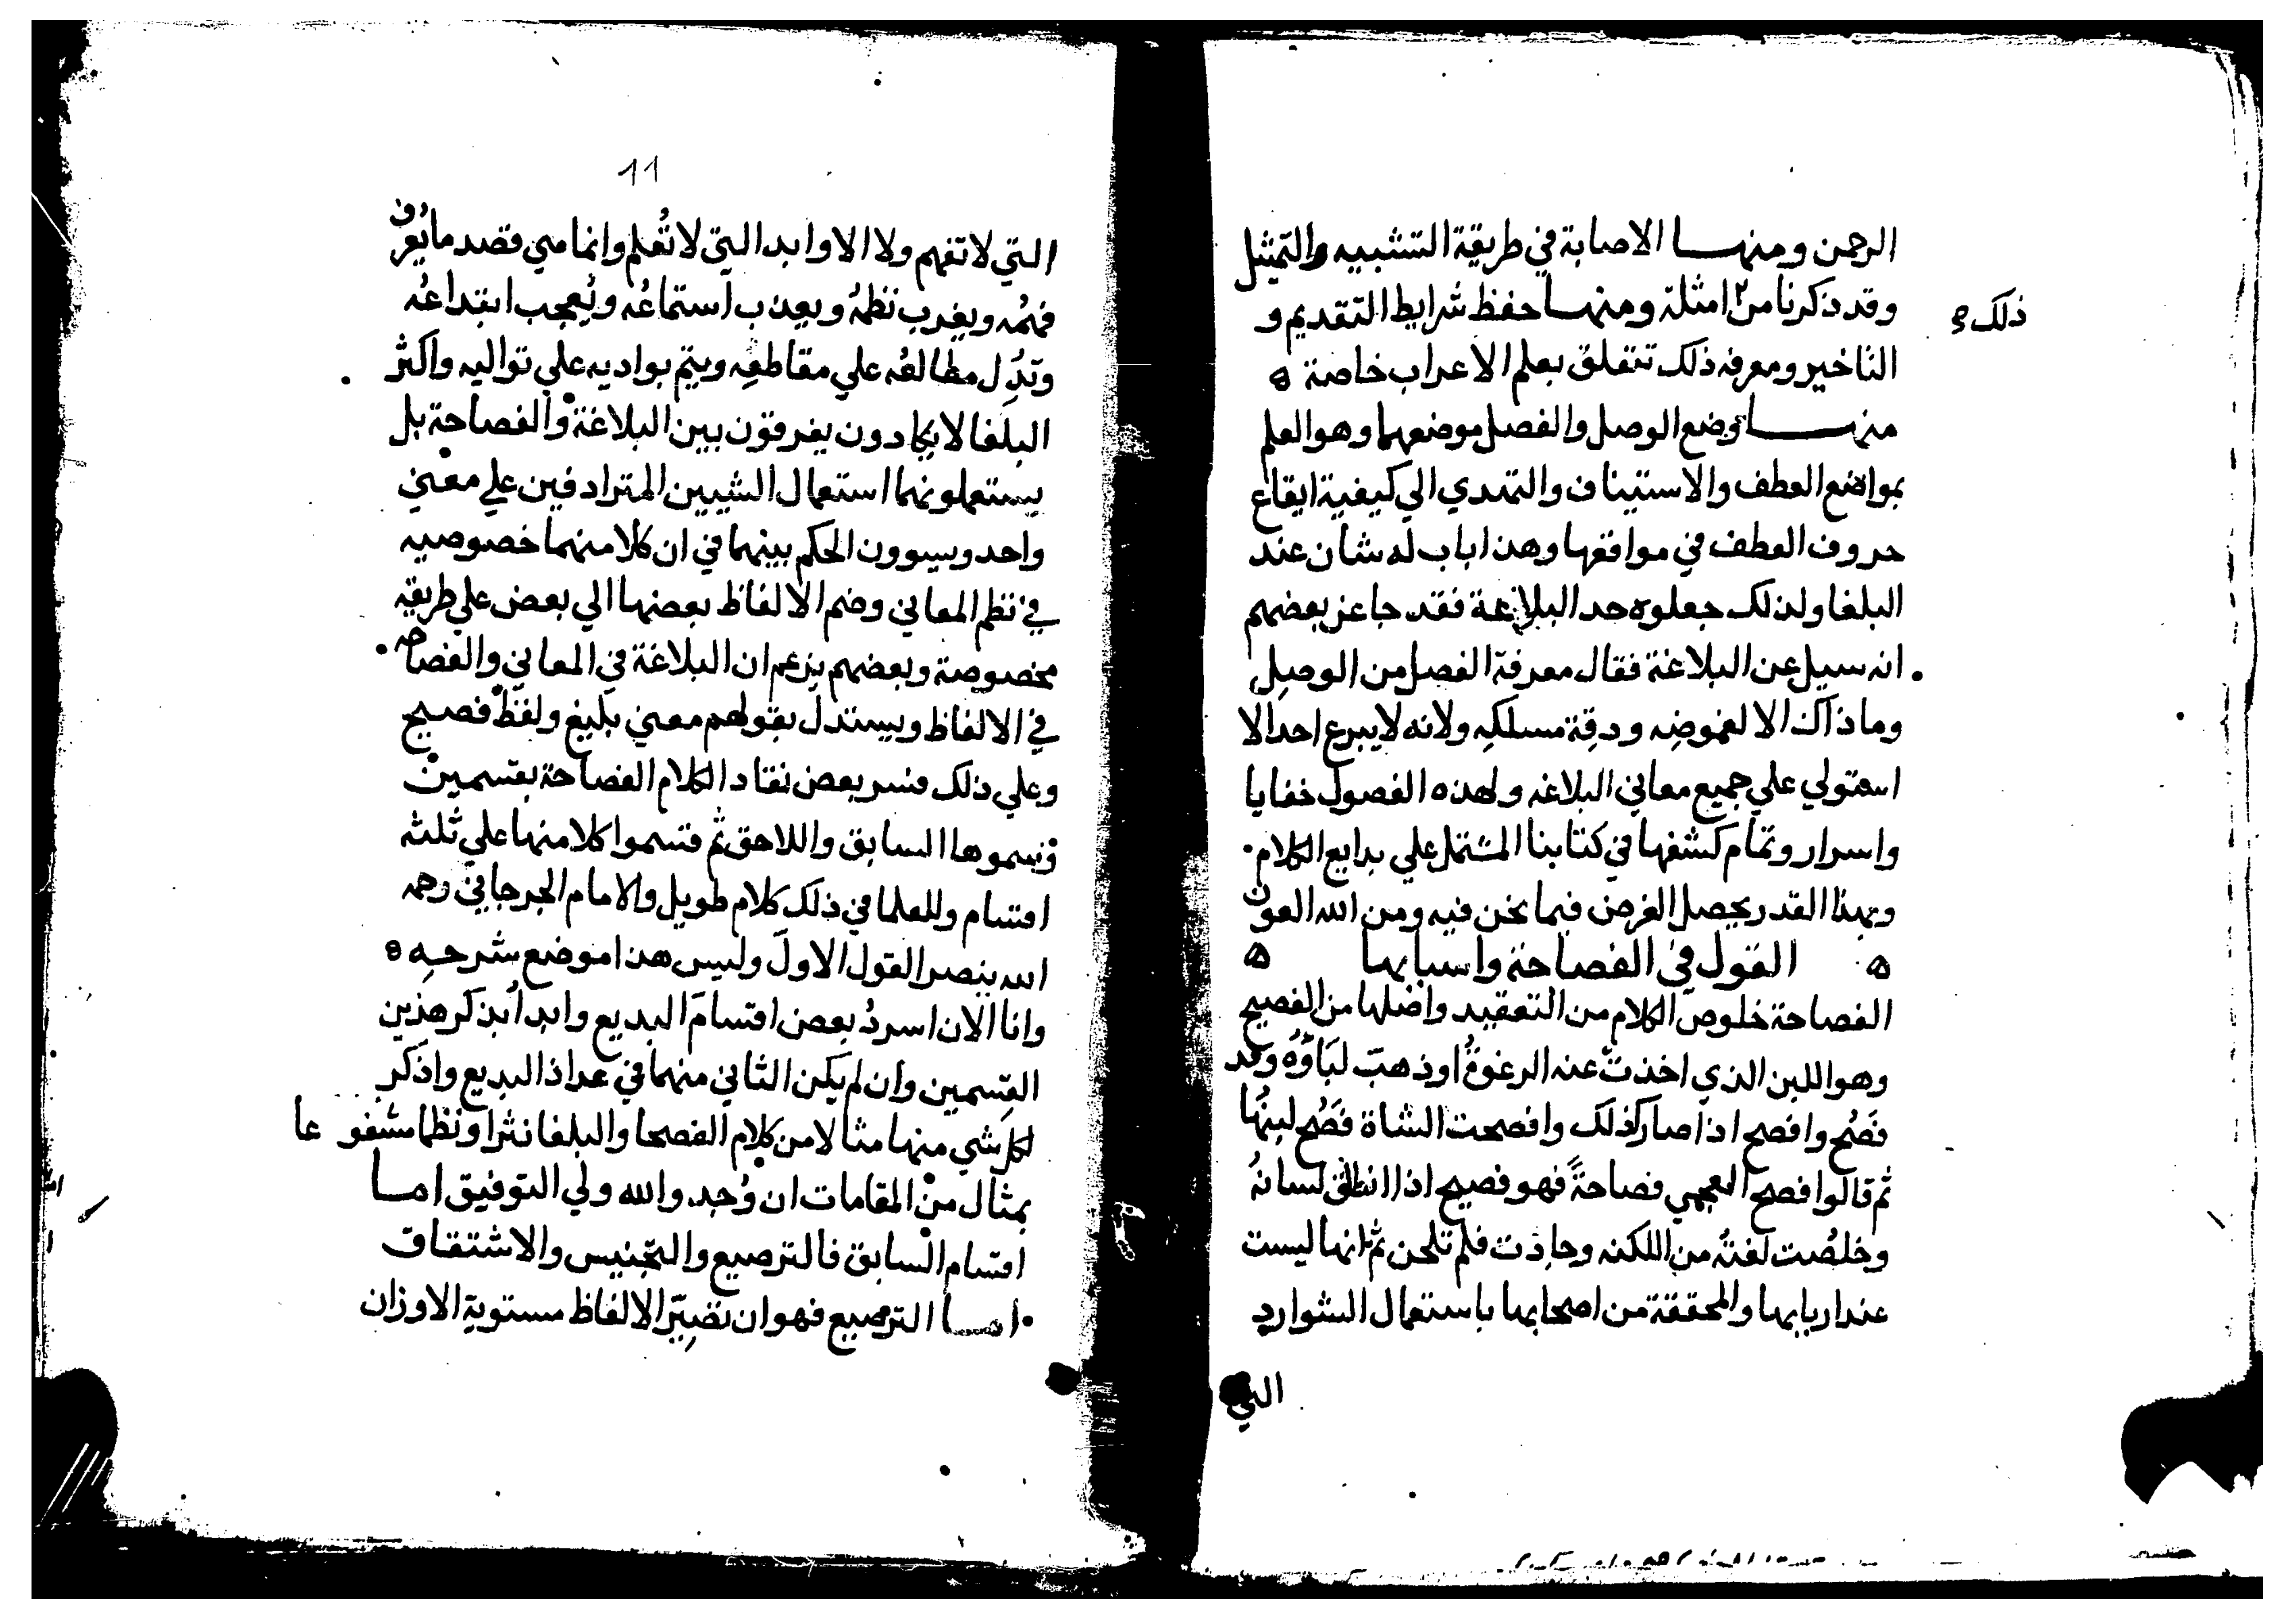 الرحمن ومنها الاصابة في طريقة التشبيه والتمثيل
وقد ذكرنا من امثلة ومنها حفظ شرايط التقديم و
ذلك
التاخير ومعرفه ذلك تتعلق بعلم الاعراب خاصة ه
منها وضع الوصل والفصل موضعهما وهو العلم
بمواضع العطف والاستيناف والتهدي الي كيفية ايقاع
حروف العطف في مواقعها وهذا باب له شان عند
البلغا ولذلك جعلوه حد البلاغة فقد جا عن بعضهم
انه سيل عن البلاغة فقال معرفة الفصل من الوصل
وما ذاك الا لغموضه ودقة مسلكه ولانه لا يبرع احد الا
استولي علي جميع معاني البلاغه ولهذه الفصول خفايا
واسرار وتمام كشفها في كتابنا المشتمل علي بدايع الكلام
وبهذا القدر يحصل الغرض فيما نحن فيه ومن الله العون
ه القول في الفصاحة واسبابها ه
الفصاحة خلوص الكلام من التعقيد واصلها من الفصيح
وهو اللبن الذي اخذت عنه الرغوة او ذهب لباؤه وقد
فصح وافصح اذا صار كذلك وافصحت الشاة فصح لبنها
ثم قالوا افصح العجمي فصاحة فهو فصيح اذا انطلق لسانه
وخلصت لغته من اللكنه وجادت فلم تلحن ثم انها ليست
عند اربابها والمحققة من اصحابها باستعمال الشوارد
التي
11
التي لا تفهم ولا الاوابد التي لا تعلم وانما هي قصد ما يعرف
فهمه ويغرب نظمه ويعذب استماعه ويعجب ابتداعه
وتدل مطالعه علي مقاطعه وينم بواديه علي تواليه واكثر
البلغا لا يكادون يفرقون بين البلاغة والفصاحة بل
يستعلونهما استعمال الشيين المترادفين علي معني
واحد ويسوون الحكم بينهما في ان كلا منهما خصوصيه
في نظم المعاني وضم الالفاظ بعضها الي بعض علي طريقه
مخصوصة وبعضهم يزعم ان البلاغة في المعاني والفصاحه
في الالفاظ ويستدل بقولهم معني بليغ ولفظ فصيح
وعلي ذلك فسر بعض نقاد الكلام الفصاحة بقسمين
وسموها السابق واللاحق ثم قسموا كلا منها علي ثلثه
اقسام وللعلما في ذلك كلام طويل والامام الجرجاني رحمه
الله ينصر القول الاول وليس هذا موضع شرحه ه
وانا الان اسرد بعض اقسام البديع وابدا بذكر هذين
القسمين وان لم يكن الثاني منهما في عداد البديع واذكر
لكل شي منها مثالا من كلام الفصحا والبلغا نثرا ونظما مشفوعا
بمثال من المقامات ان وجد والله ولي التوفيق اما
اقسام السابق فالترصيع والتجنيس والاشتقاق
اما الترصيع فهو ان تصير الالفاظ مستوية الاوزان